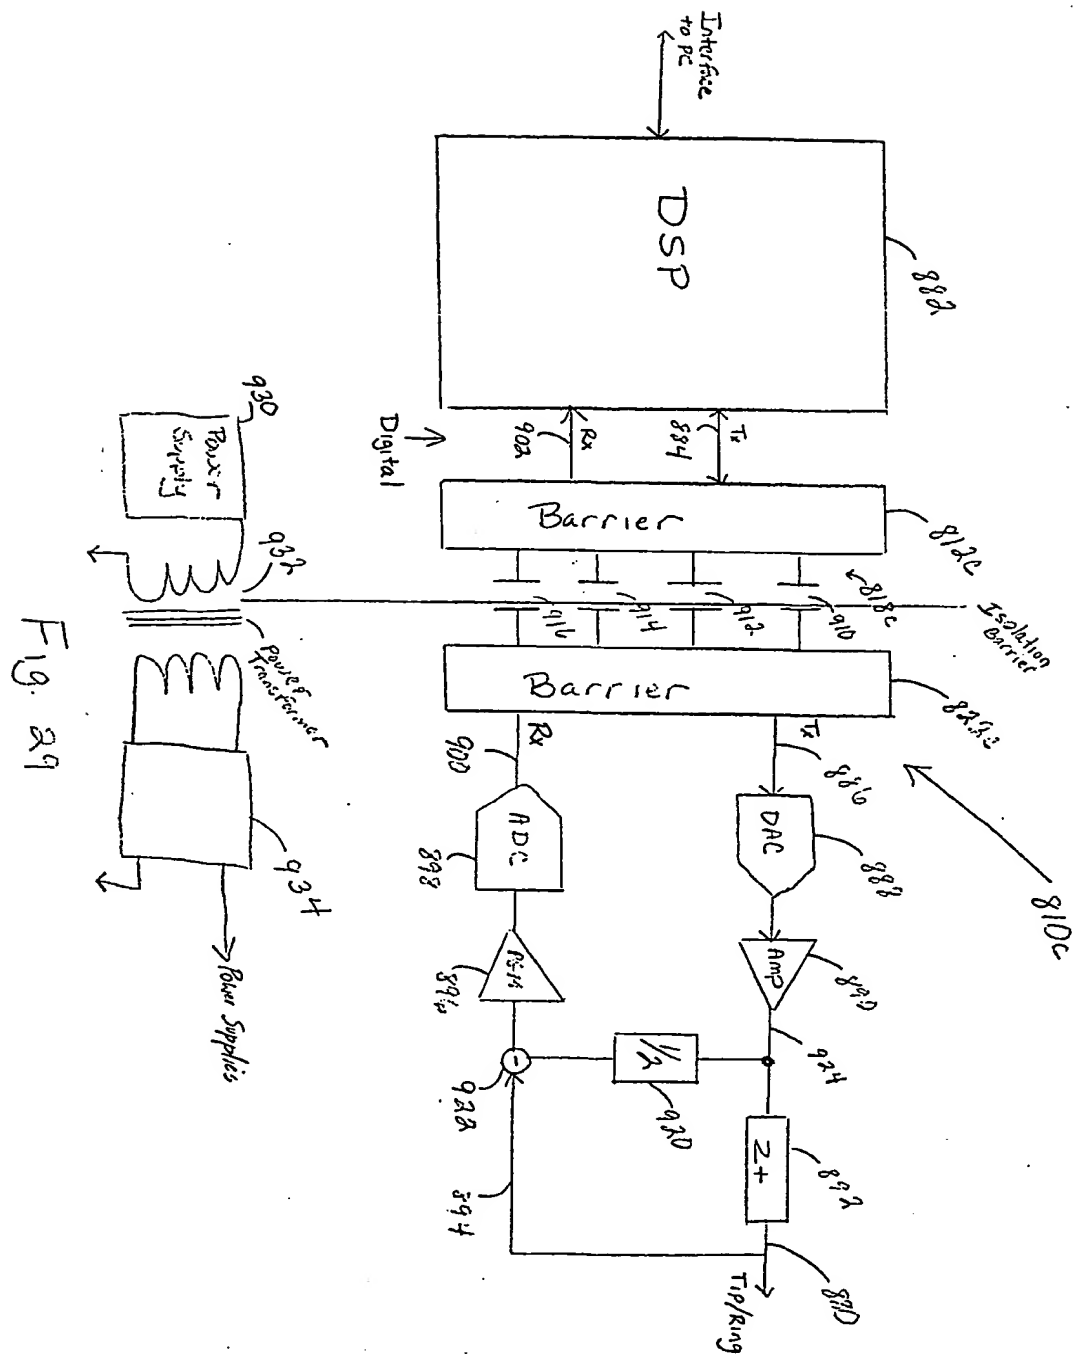 Interface
to PC
DSP
882
Tx
884
Rx
902
Digital
Barrier
812C
818C
Isolation
Barrier
910
912
914
916
Barrier
Tx
886
DAC
888
Amp
890
924
Z+
892
870
Tip/Ring
810C
1/2
920
-
922
894
896
ADC
898
Rx
900
930
Power
Supply
932
Power
Transformer
934
Power Supplies
Fig. 29